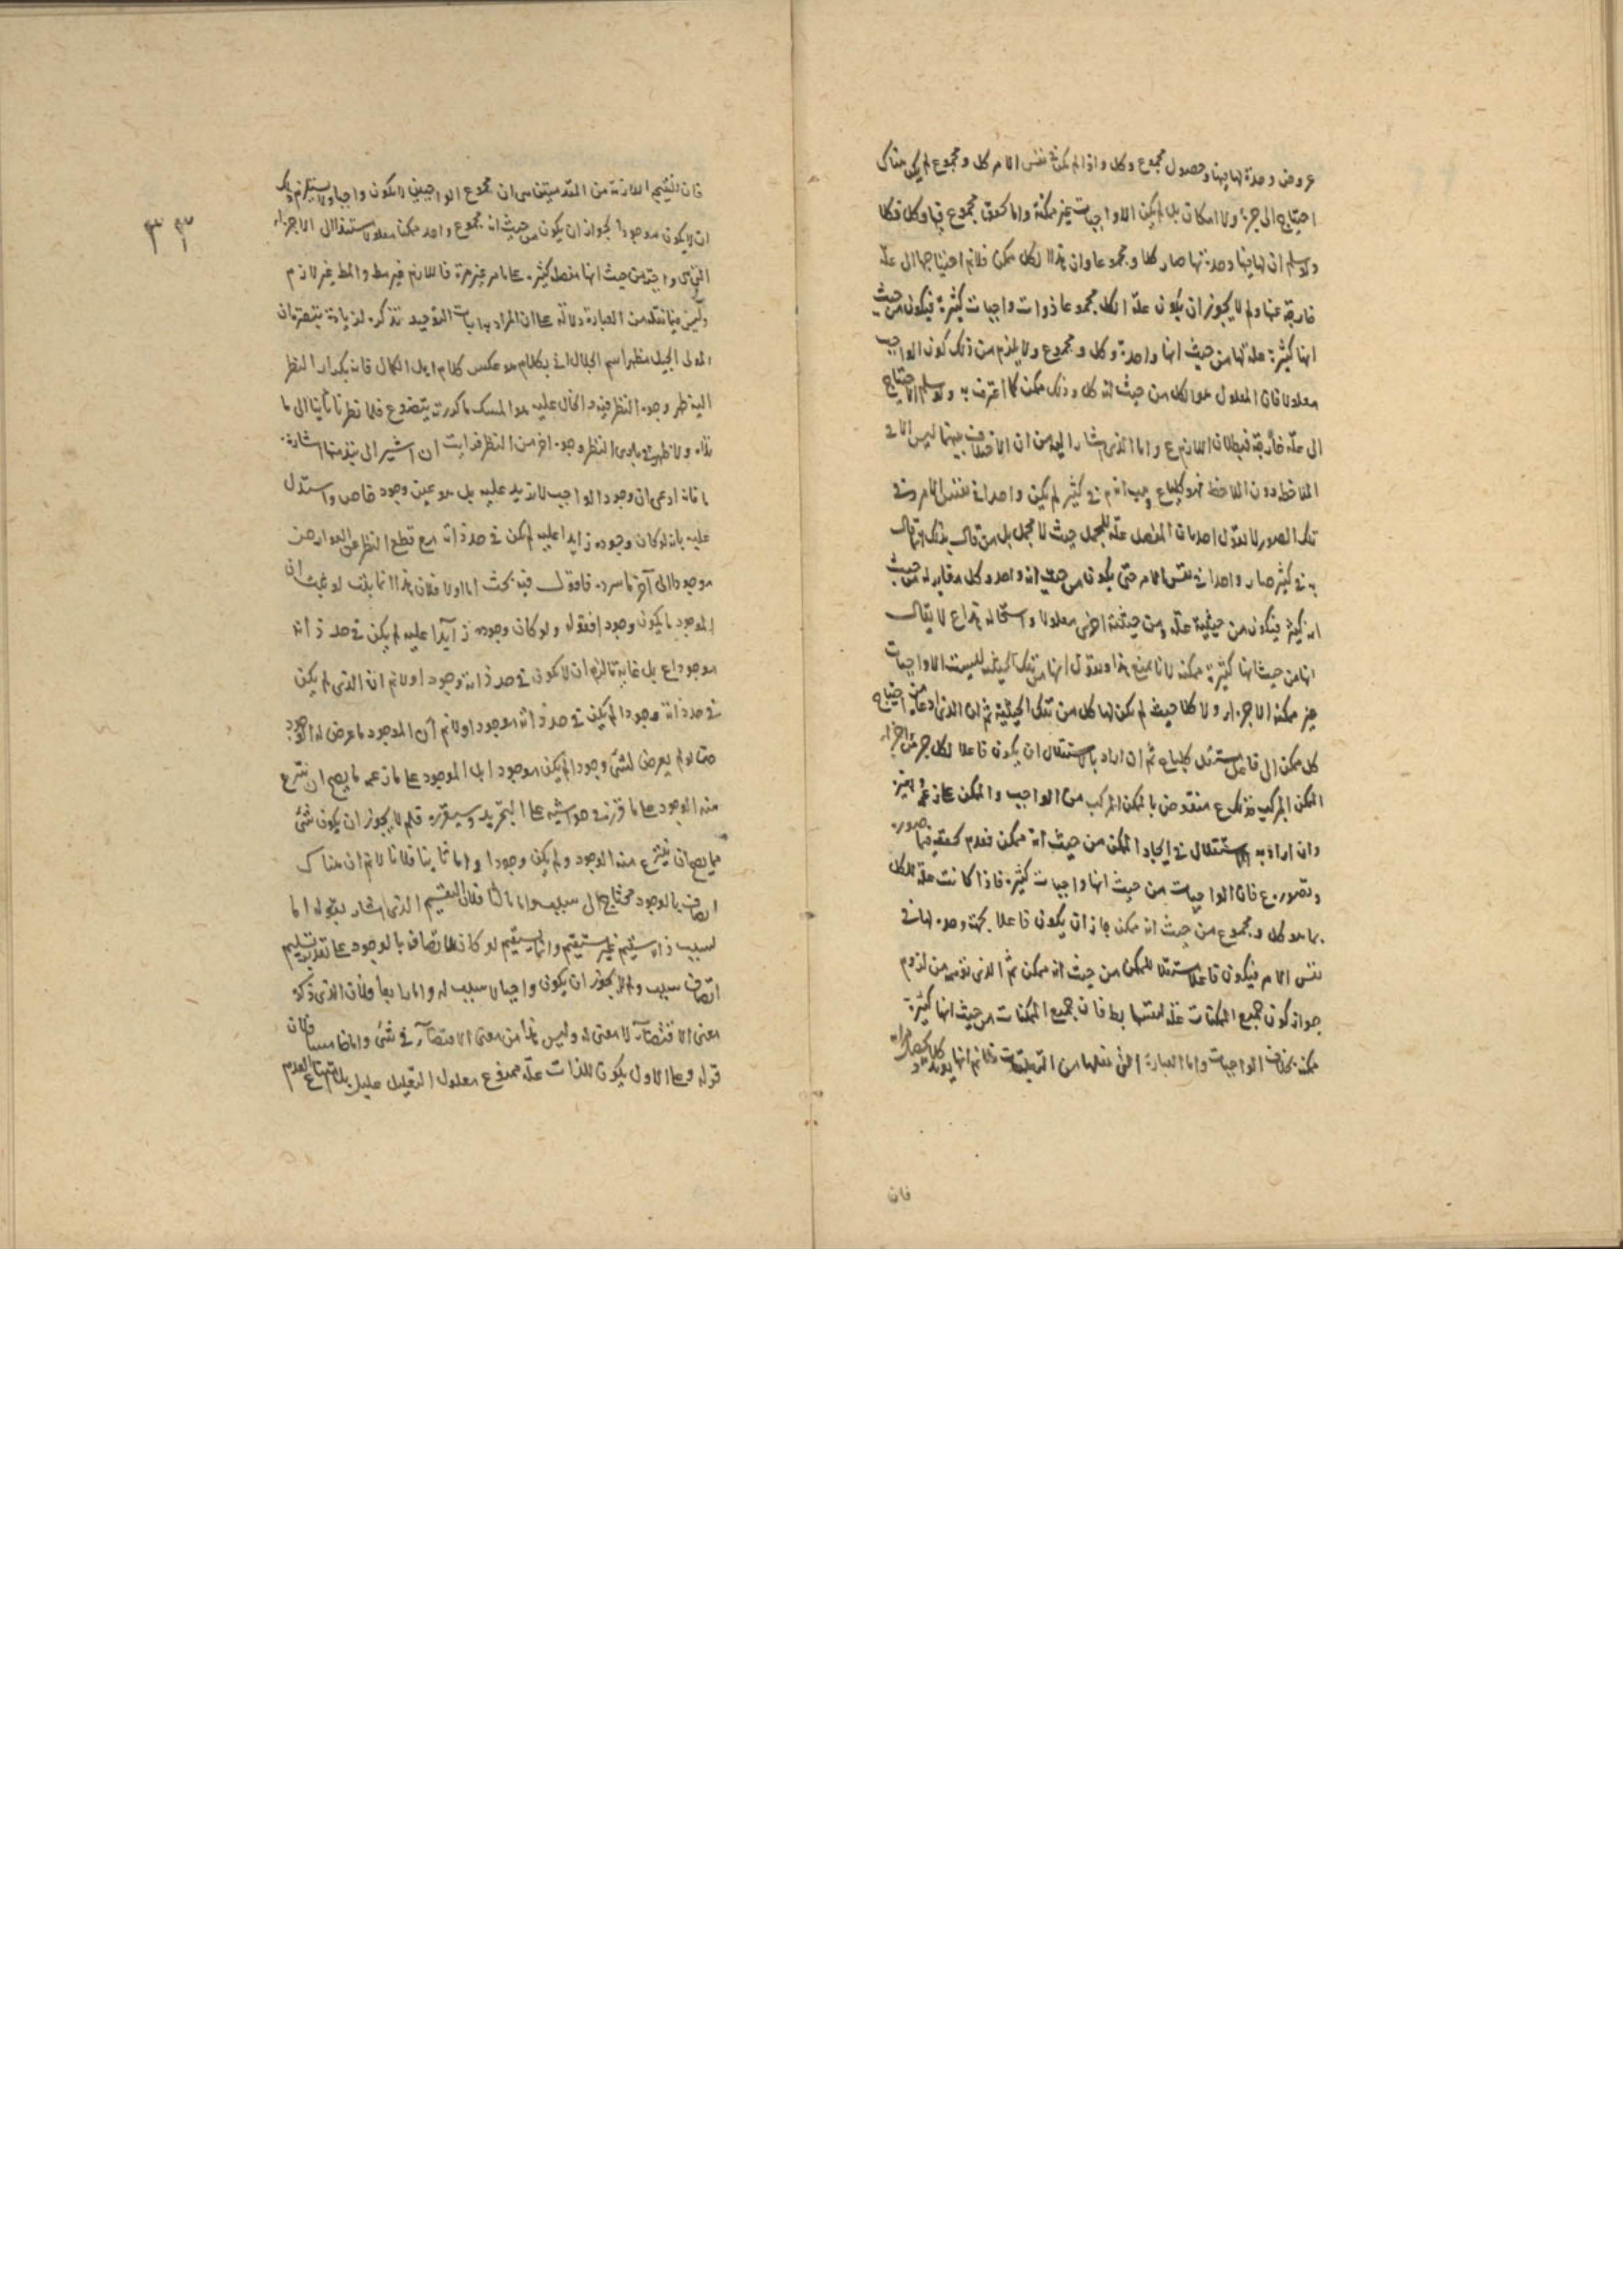 عروض وحدة لها بها وحصول مجموع وكل واذا لم يكن في نفس الامر كل ومجموع لم يكن هناك
احتياج الى جزء ولا امكان بل لم يكن الا واجبات غير ممكنة واما تحقق مجموع فيها وكل فكلا
ولو سلم ان لها فيها وحدة بها صار كلا ومجموعا وان هذا الكل ممكن فلانم احتياجها الى علة
خارجة عنها ولم لا يجوز ان يكون علة الكل مجموعا ذوات واجبات كثيرة فيكون من حيث
انها كثيرة علة لها من حيث انها واحدة وكل ومجموع ولا يلزم من ذلك كون الواجب
معلولا فان المعلول هو الكل من حيث انه كل وذلك ممكن كما اعترف به ولو سلم الاحتياج
الى علة خارجة فبطلان اللازم ع واما الذي اشار اليه من ان الاختلاف بينهما ليس الا في
الملاحظة دون الملاحظ فهو كلباع انه في كثير لم يكن واحدا في نفس الامر وفي
تلك الصور لا نقول احد بان المفصل علة للمجمل حيث لا مجمل بل من قال بذلك قال
به في كثير صار واحدا في نفس الامر حتى يكون من حيث انه واحد وكل مغاير له من حيث
انه كثير فيكون من حيثية علة ومن حيثية اخرى معلولا واستحالة هذا ع لا يقال
انها من حيث انها كثيرة ممكنة لانا نمنع هذا ونقول انها من تلك الحيثية ليست الا واجبات
غير ممكنة الاجزاء ولا كلا حيث لم يكن لها كل من تلك الحيثية ثم ان الذي ادعاه من احتياج
كل ممكن الى فاعل مستقل كلباع ثم ان اراد بالاستقلال ان يكون فاعلا لكل جزء من اجزاء
الممكن المركب فذلك ع منقوض بالممكن المركب من الواجب والممكن
وان اراد به الاستقلال في ايجاد الممكن من حيث انه ممكن فعدم تحققه فيما صوره
وتصور ع فان الواجبات من حيث انها واجبات كثيرة فاذا كانت علة للكل
بما هو كل ومجموع من حيث انه ممكن جاز ان يكون فاعلا بجهة وحدة لها في
نفس الامر فيكون فاعلا مستقلا للممكن من حيث انه ممكن ثم الذي توهم من لزوم
جواز كون جميع الممكنات علة لنفسها بط فان جميع الممكنات من حيث انها كثيرة
ممكنة بخلاف الواجبات واما العبارة التي نقلها من التعليقات فلانم انها
فان
٣٣
فان نتيجة اللازمة من المقدمتين هي ان مجموع الواجبين لا يكون واجبا ولا يستلزم ذلك
ان لا يكون موجودا لجواز ان يكون من حيث انه مجموع واحد ممكنا معلولا مستندا الى الاجزاء
التي هي واجبة من حيث انها مفصلة كثيرة على ما مر غير مرة فاللازم غير مط والمط غير لازم
وليس فيما نقله من العبارة دلالة على ان المراد بها اثبات التوحيد تذكرة لزيادة تبصرة ان
المولى الجليل مظهر اسم الجلال اتى بكلام هو عكس كلام اهل الكمال فانه بكرار النظر
اليه ظهر وجوه النظر فيه والحال عليه هو المسك ما كررته يتضوع فلما نظرنا ثانيا الى ما
بداه ولا ظهرت بادى النظر وجوه اخر من النظر فرايت ان اشير الى نبذ منها اشارة
ما فانه ادعى ان وجود الواجب لا يزيد عليه بل هو عين وجود خاص واستدل
عليه بانه لو كان وجوده زايدا عليه لم يكن في حد ذاته مع قطع النظر عن العوارض
موجودا الى آخر ما سرده فاقول فيه بحث اما اولا فلان هذا انما يثبت لو ثبت ان
الموجود ما يكون وجودا فقوله ولو كان وجوده زايدا عليه لم يكن في حد ذاته
موجودا ع بل غاية ما لزم ان لا يكون في حد ذاته وجودا ولانم ان الذي لم يكن
في حد ذاته وجودا لم يكن في حد ذاته موجودا ولانم ان الموجود ما عرض له الوجود
حتى لو لم يعرض لشئ وجود لم يكن موجودا بل الموجود على ما زعمه ما يصح ان ينتزع
منه الوجود على ما قرر في حواشيه على التجريد وسيقرره فلم لا يجوز ان يكون شئ
مما يصح ان ينتزع منه الوجود ولم يكن وجودا واما ثانيا فلانا لانم ان هناك
اتصاف بالوجود محتاج الى سبب واما ثالثا فلان التقسيم الذي اشار بقوله اما
لسبب ذاته ليستقيم غير مستقيم وانما يستقيم لو كان الاتصاف بالوجود على تقدير تسليم
اتصاف سبب ولم لا يجوز ان يكون واجبا لا سبب له واما رابعا فلان الذي ذكره
معنى الاقتضاء لا معنى له وليس هذا من معنى الاقتضاء في شئ واما خامسا فلان
قوله وعلى الاول يكون للذات علة ممنوع معلول التعليل عليل